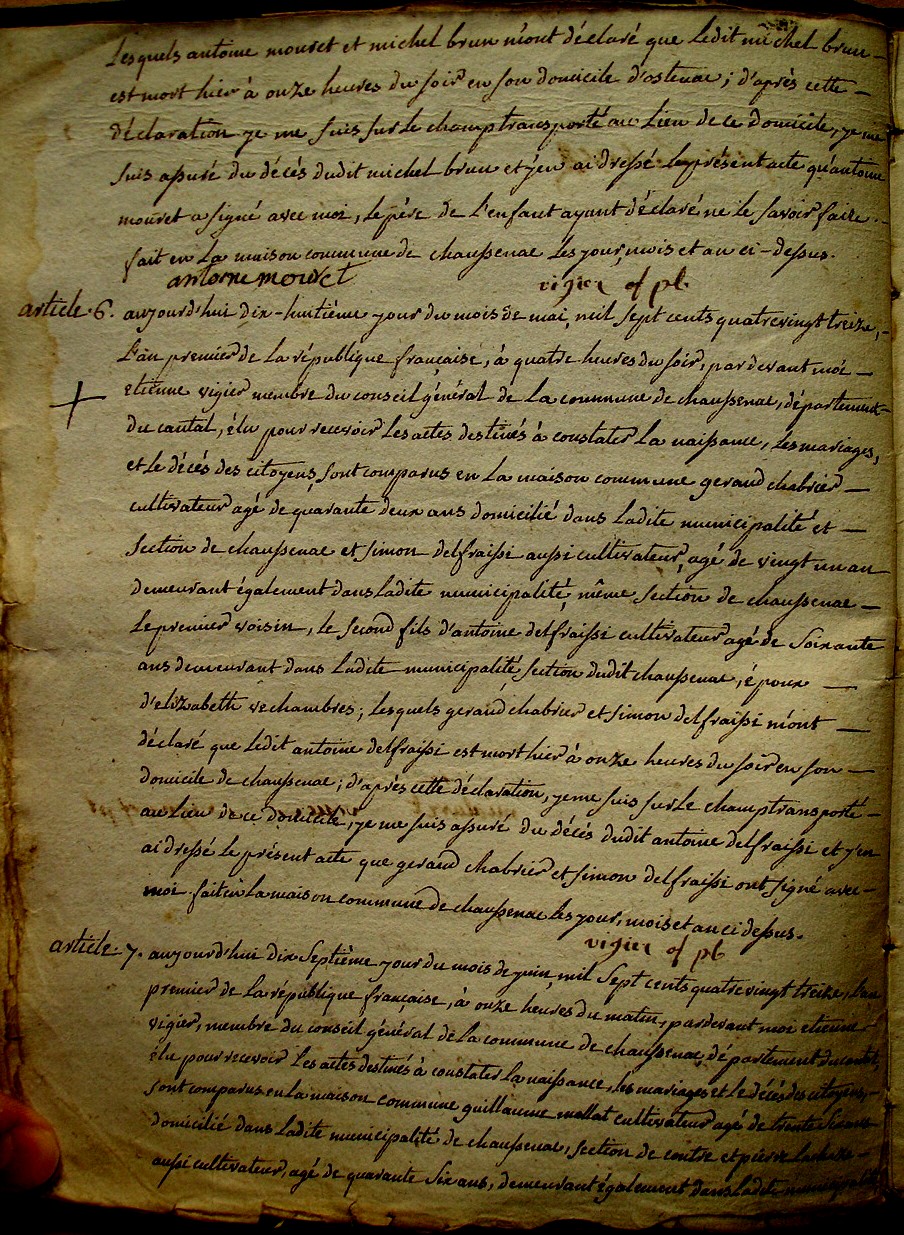 Lesquels antoine mouret et michel brun m'ont déclaré que Ledit michel brun -
est mort hier à onze heures du soir en son domicile d'ostenac ; d'après cette -
déclaration je me suis sur le champ transporté au Lieu de ce domicile, je me
suis assuré du décès dudit michel brun et j'en ai dressé le présent acte qu'antoine
mouret a signé avec moi, Le père de L'enfant ayant déclaré ne le savoir faire.
fait en La maison commune de chaussenac Les jour, mois et an ci-dessus.
antoine mouret vigier of pb.
article. 6. aujourd'hui dix-huitième jour du mois de mai, mil sept cents quatrevingt treize,
L'an premier de La république française, à quatre heures du soir, pardevant moi -
etienne vigier membre du conseil général de La commune de chaussenac, département
du cantal, élu pour recevoir Les actes destinés à constater La naissance, Les mariages,
et Le décès des citoyens, sont comparus en La maison commune geraud chabrier -
cultivateur agé de quarante deux ans domicilié dans Ladite municipalité et -
section de chaussenac et simon delfraissi aussi cultivateur, agé de vingt un an
demeurant également dans Ladite municipalité, même section de chaussenac -
Le premier voisin, Le second fils d'antoine delfraissi cultivateur agé de soixante
ans demeurant dans Ladite municipalité section dudit chaussenac, époux -
d'elizabeth vechambres ; Lesquels geraud chabrier et simon delfraissi m'ont -
déclaré que Ledit antoine delfraissi est mort hier à onze heures du soir en son -
domicile de chaussenac ; d'après cette déclaration, je me suis sur Le champ transporté -
au Lieu de ce domicile, je me suis assuré du décès dudit antoine delfraissi et j'en
ai dressé Le présent acte que geraud chabrier et simon delfraissi ont signé avec -
moi. fait en La maison commune de chaussenac Les jour, mois et an ci dessus.
vigier of pb
article. 7. aujourd'hui dix septième jour du mois de juin, mil sept cents quatrevingt treize, L'an
premier de La république française, à onze heures du matin, pardevant moi etienne
vigier, membre du conseil général de La commune de chaussenac, département du cantal,
élu pour recevoir Les actes destinés à constater La naissance, Les mariages et Le décès des citoyens,
sont comparus en La maison commune guillaume mollat cultivateur agé de trente six ans
domicilié dans Ladite municipalité de chaussenac, section de contre et pierre
aussi cultivateur, agé de quarante six ans, demeurant également dans Ladite municipalité